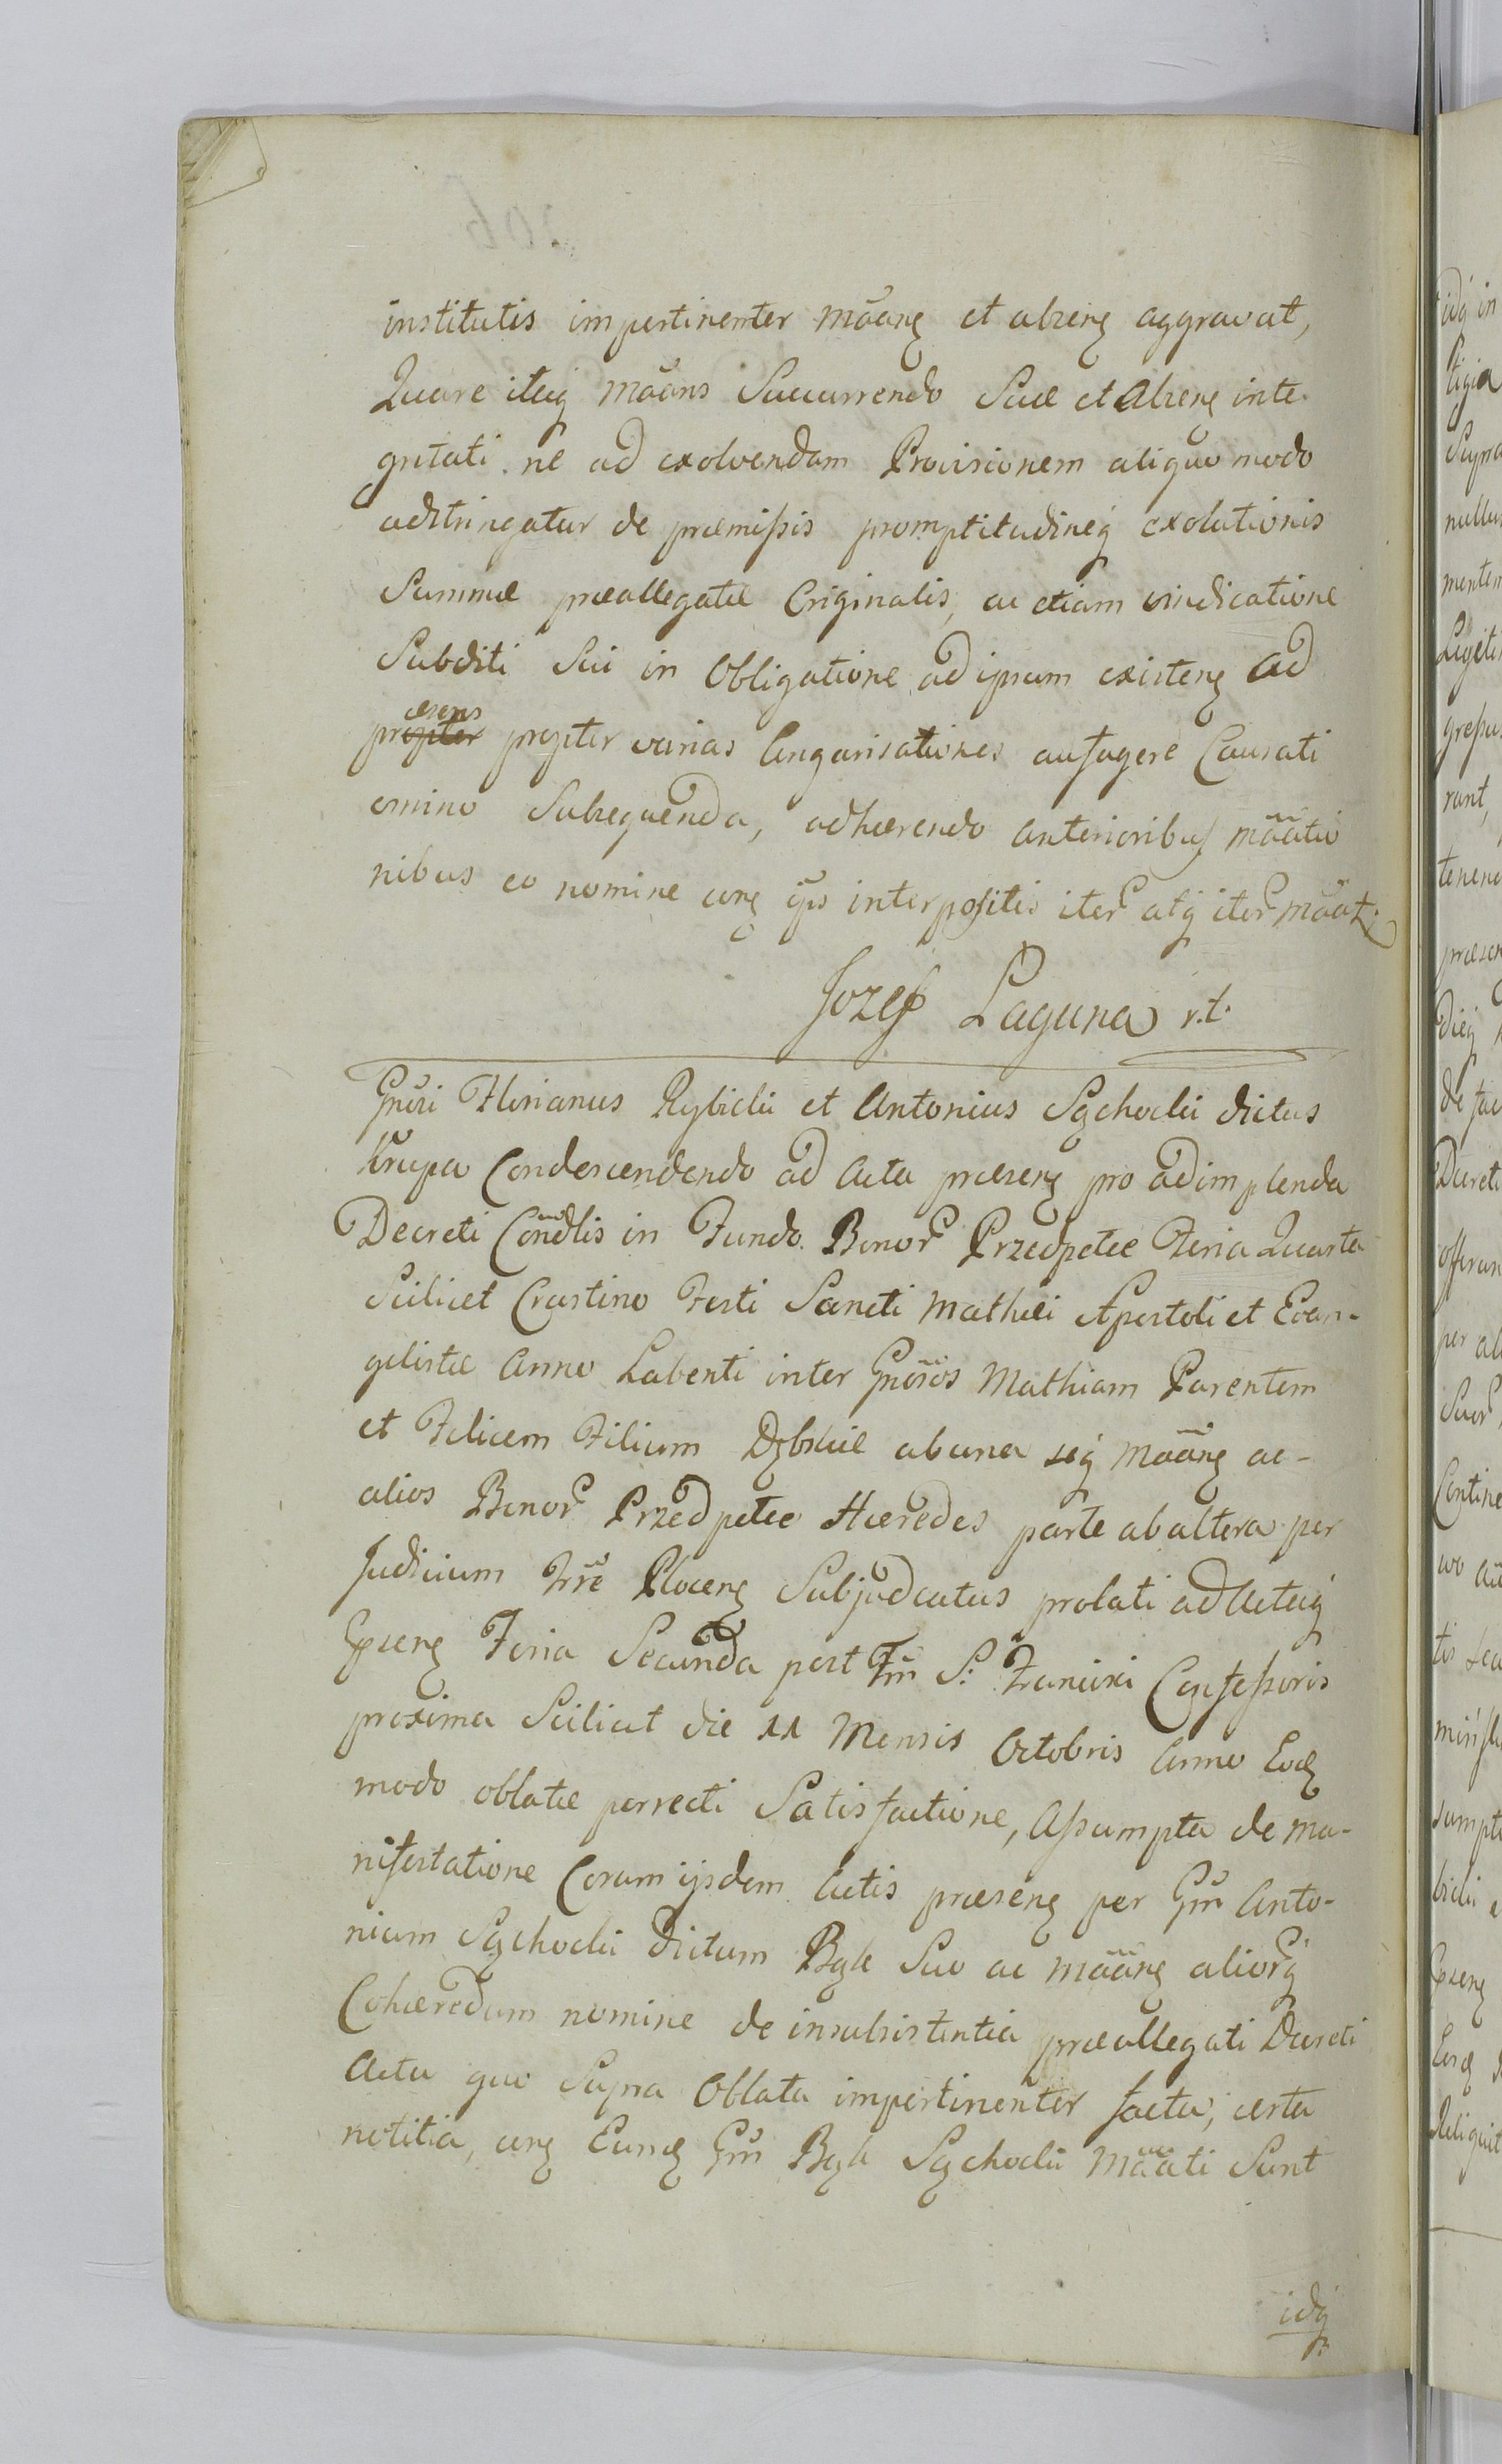 institutis impertinenter mãang et abseng aggravat,
Quare itaq mãans Succurrendo Suæ et Abseng inte-
gritati ne ad exolvendam Provisionem aliquo modo
adstringatur de præmissis promptitudineq exolutionis
Summæ præallegatæ Originalis, ac etiam vindicatione
Subditi Sui in Obligatione ad ipsum existeng ad
præsens propter varias Angarisationes aufugere Causati
omino Subsequenda, adhærendo Anterioribus mãatio
nibus eo nomine cong ips interpositis iter atq iter mãat.
Jozef Laguna r.t.
Gnõsi Florianus Rybicki et Antonius Sąchocki dictus
Krupa Condescendendo ad Acta præseng pro adimplenda
Decreti Cõndlis in Fundo Bonor Przedpełce Feria Quarta
Scilicet Crastino Festi Sancti Mathæi Apostoli et Evan-
gelistæ Anno Labenti inter Gnõsos Mathiam Parentem
et Felicem Filium Dębskie ab una seq mãang ac-
alios Bonor Przedpełce Hæredes parte ab altera per
Judicium Trrẽ Ploceng Subjudcatus prolati ad Actaq
Pseng Feria Secunda post Fm S. Francisci Confessoris
proxima Scilicet die 11 Mensis Octobris Anno Eodg
modo oblatæ porrecti Satisfactione, Assumpta de ma-
nifestatione Coram ijsdem Actis præseng per Gm Anto-
nium Sąchocki dictum Bąk Suo ac mãang aliorq
Cohæredum nomine de insubsistentia præallegati Decreti
Actu quo Supra Oblata impertinenter facta, certa
notitia, cong Eundg Gm Bąk Sąchocki Mãati Sunt
idq